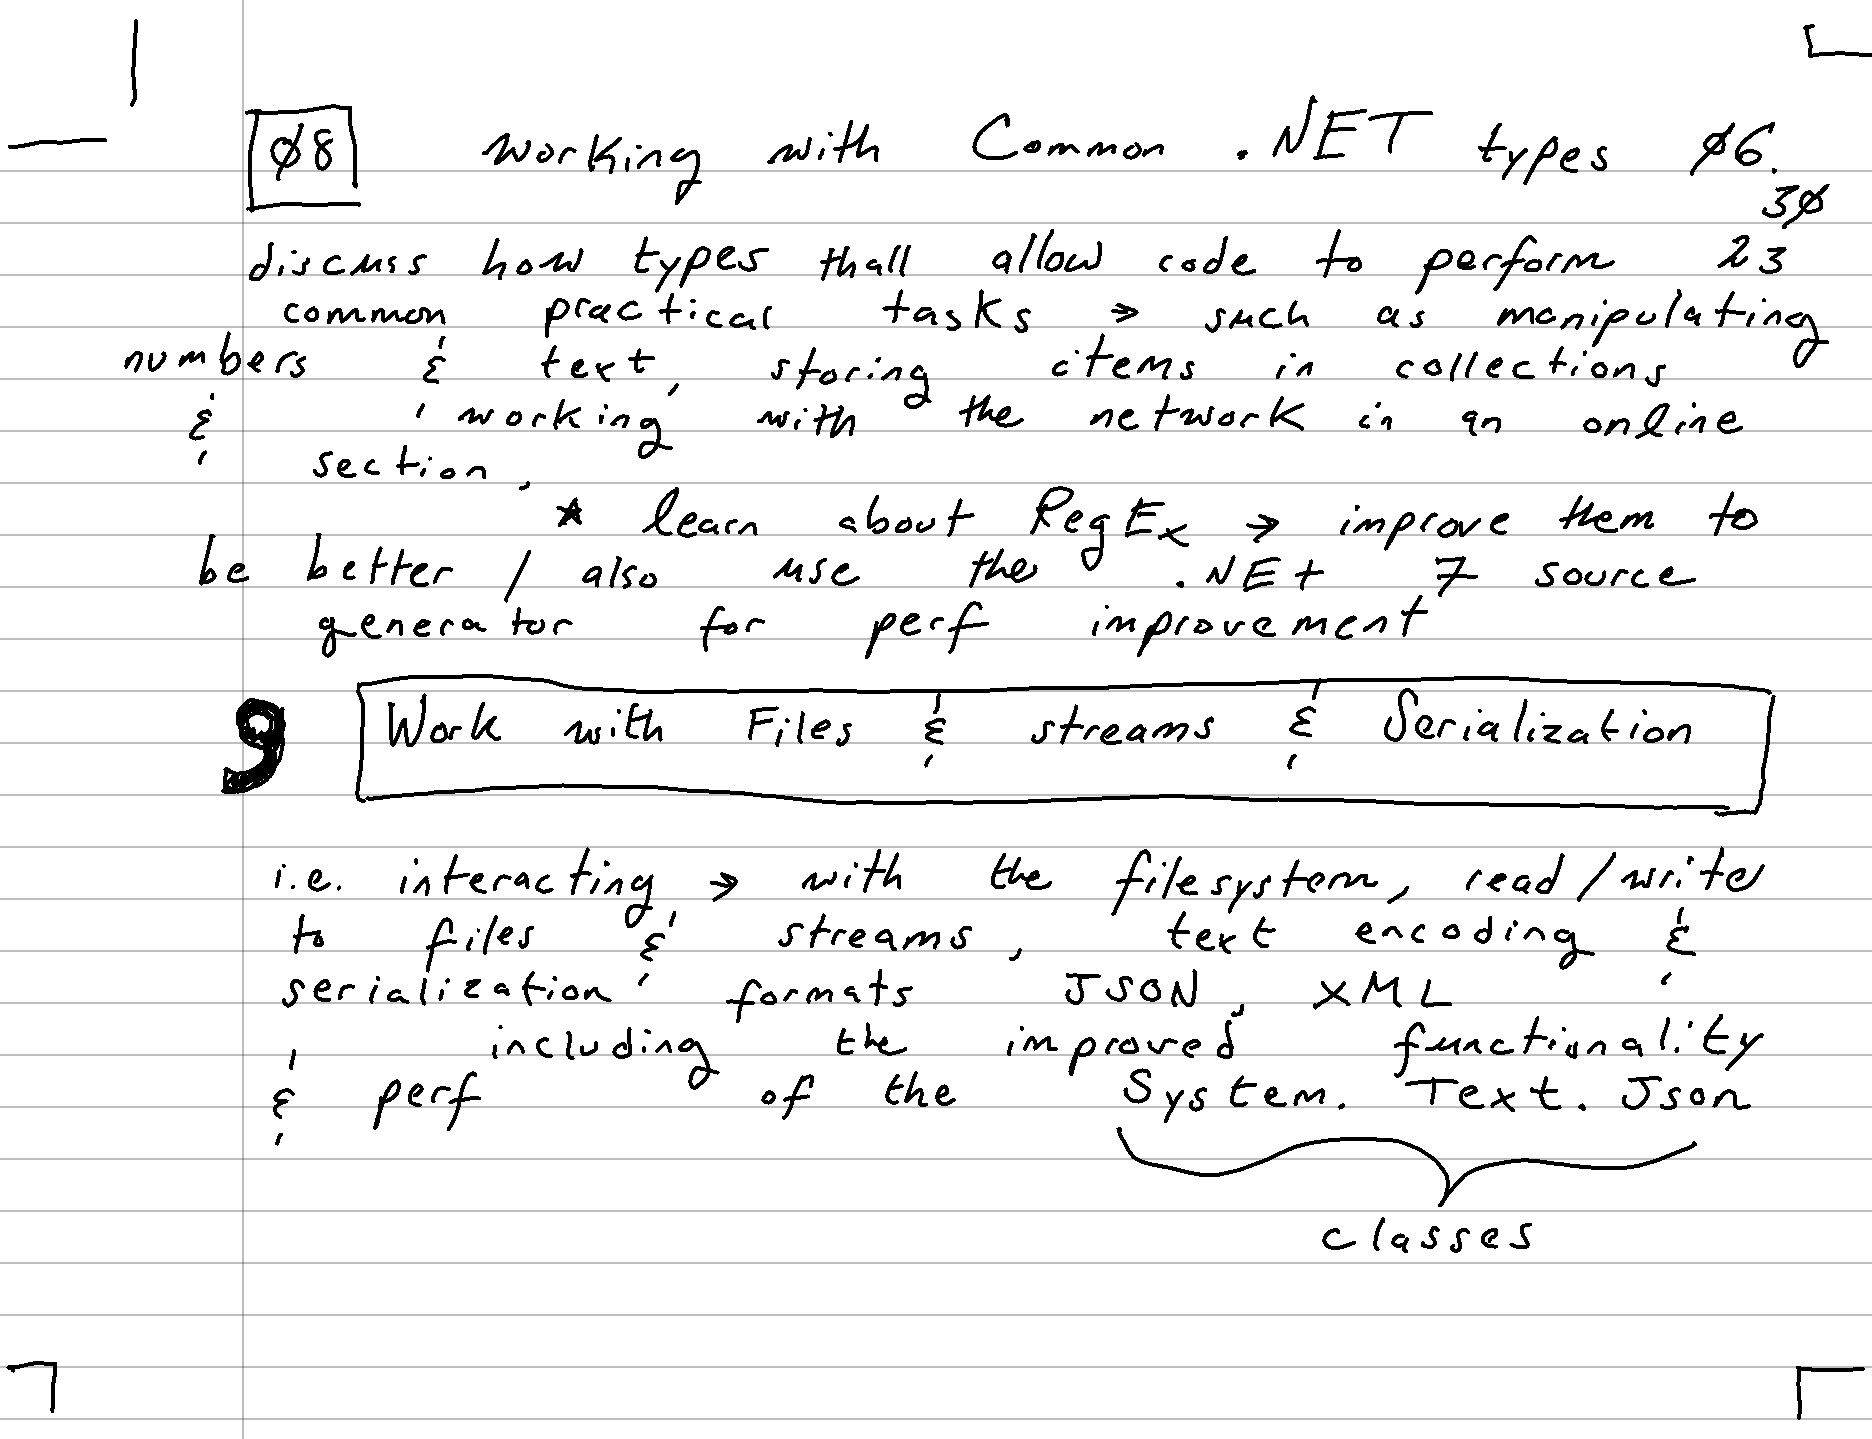 Ø8 Working with Common .NET types Ø6.
3Ø
discuss how types thall allow code to perform 23
common practical tasks → such as manipulating
numbers & text, storing items in collections
& working with the network in an online
section.
★ learn about RegEx → improve them to
be better / also use the .NEt 7 source
generator for perf improvement
9 Work with Files & streams & Serialization
i.e. interacting → with the filesystem, read / write
to files & streams, text encoding &
serialization formats JSON, XML
including the improved functionality
& perf of the System.Text.Json
classes